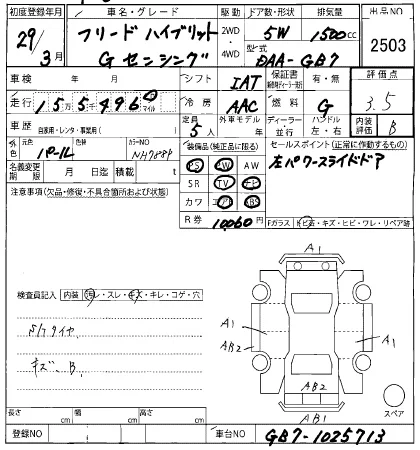 初度登録年月 車名・グレード 駆動 ドア数・形状 排気量 出品NO
29/3月 フリード ハイブリット 2WD・4WD 5W 1500cc 2503
G センシング 型式 DAA-GB7
車検 年 月 シフト IAT 保証書 有・無 評価点
走行 155496 km マイル 冷房 AAC 燃料 G 3.5
車歴 自家用・レンタ・事業用( ) 定員 5人 外車モデル年 ディーラー・並行 ハンドル 左・右 内装評価 B
外色 元色 パール 色替 カラーNO NH788P 装備品(純正品に限る) セールスポイント(正常に作動するもの)
名義変更期限 月 日迄 積載 t PS PW AW 左パワースライドドア
注意事項(欠品・修復・不具合箇所および状態) SR TV ナビ
カワ エアB ABS
R券 10060円 Fガラス トビ石・キズ・ヒビ・ワレ・リペア跡
A1
検査員記入 内装 汚レ・スレ・キズ・キレ・コゲ・穴
S/Tタイヤ A1 A1
キズ B AB2
AB2 スペア
長さ cm 幅 cm 高さ cm AB1
登録NO 車台NO GB7-1025713